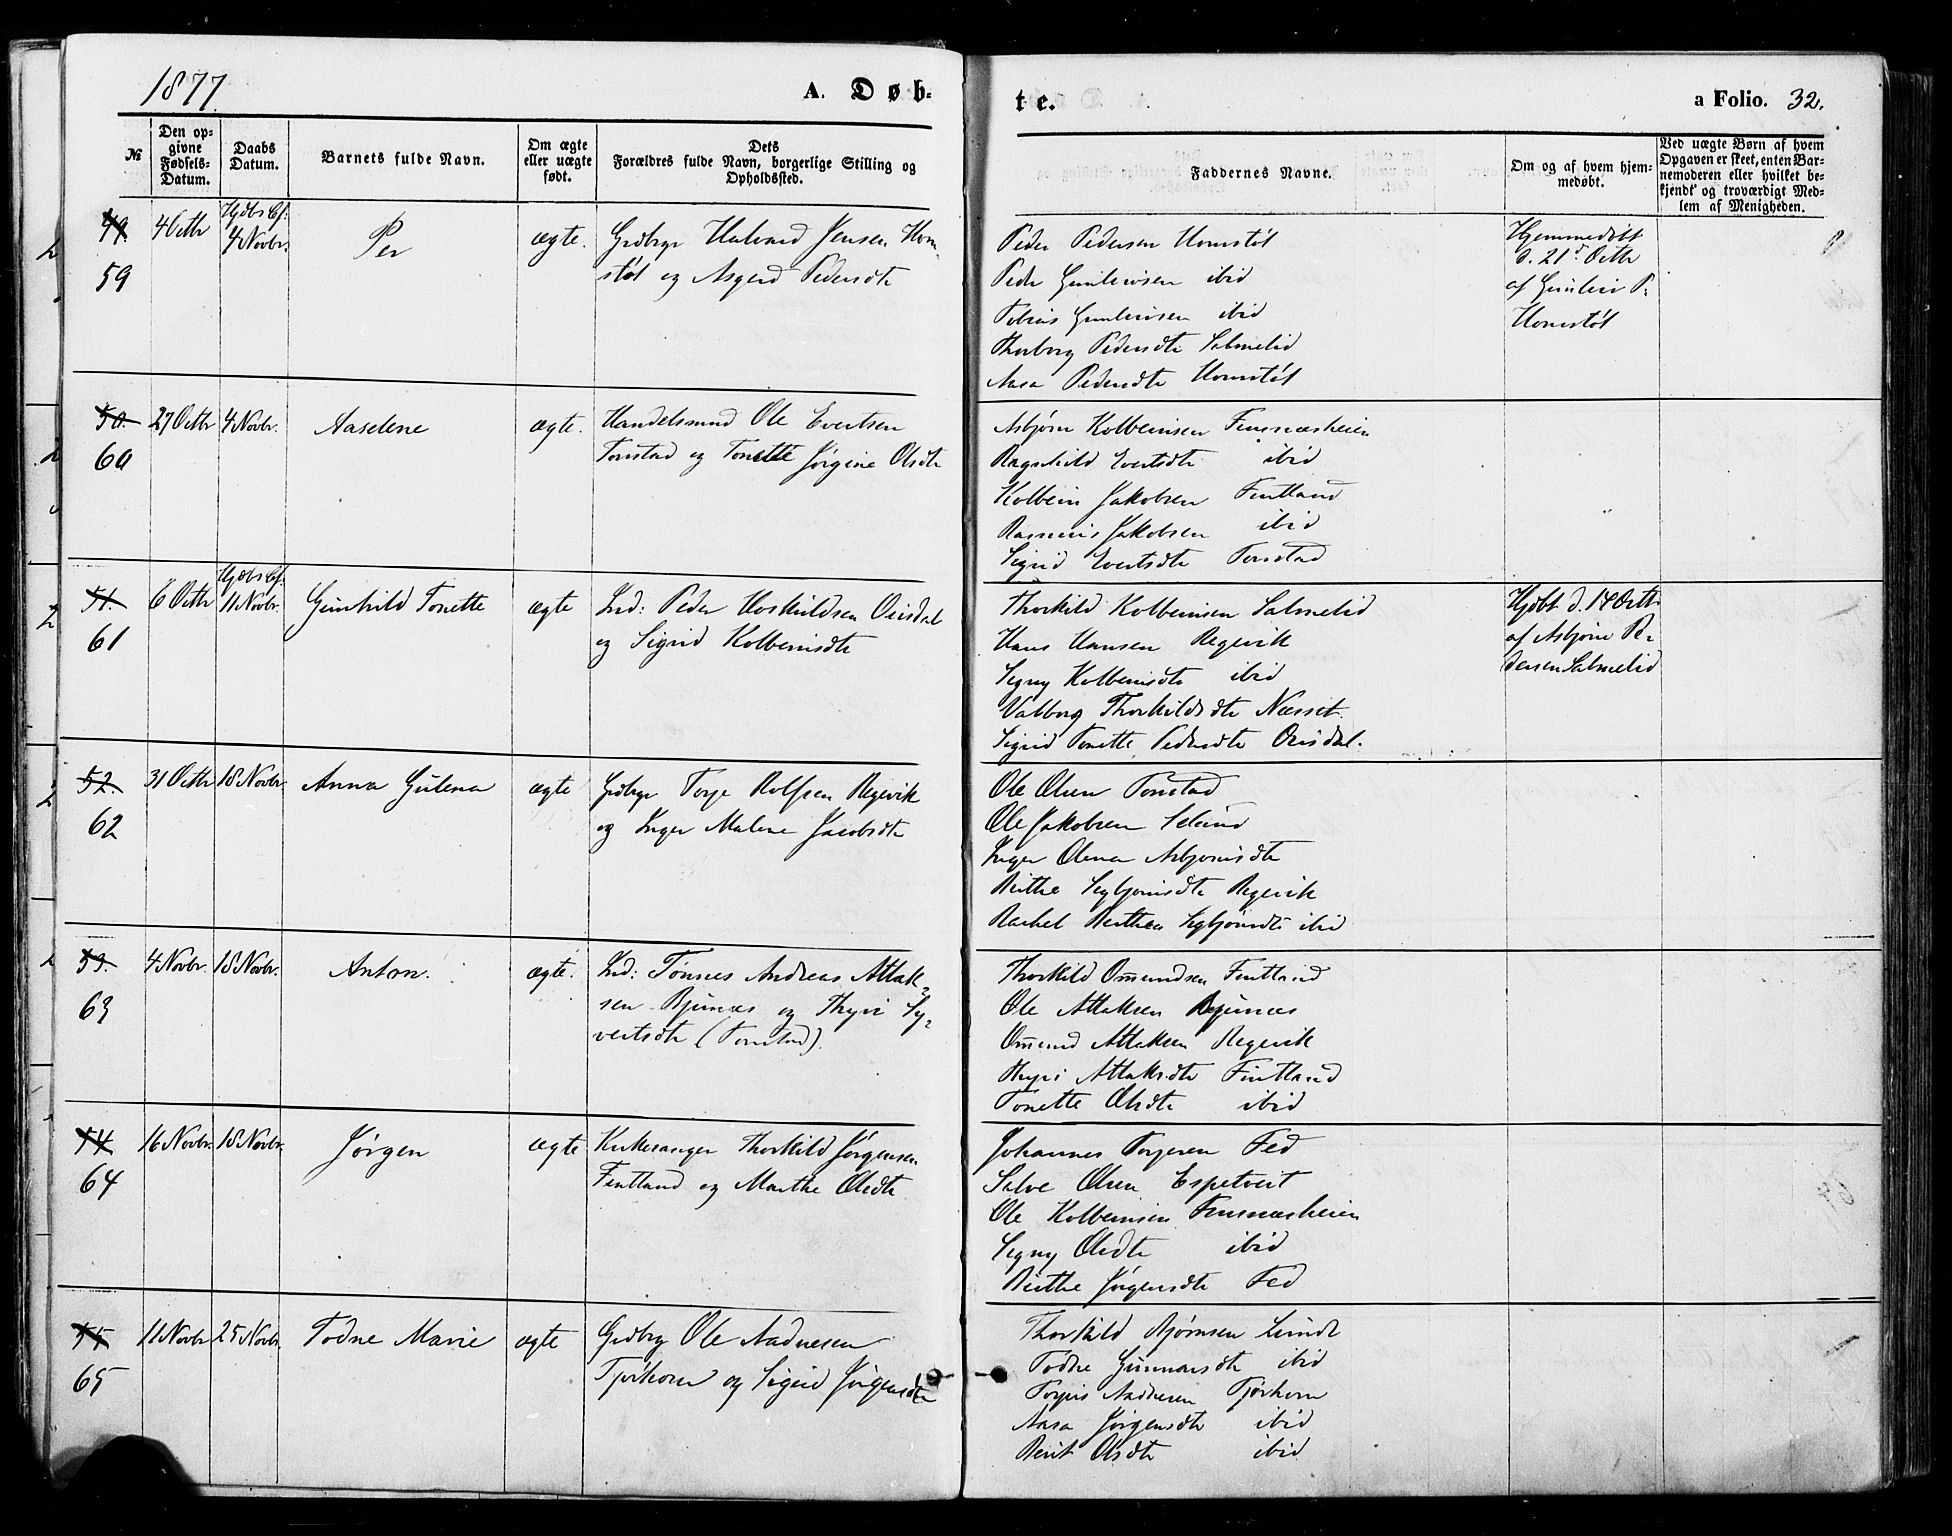 1877.
A. Døb-
te.
a Folio. 32.
№
Den op-
givne
Fødsels-
Datum.
Daabs
Datum.
Barnets fulde Navn.
Om ægte
eller uægte
født.
Dets
Forældres fulde Navn, borgerlige Stilling og
Opholdssted.
Faddernes Navne.
Om og af hvem hjem-
medøbt.
Ved uægte Børn af hvem
Opgaven er skeet, enten Bar-
nemoderen eller hvilket be-
kjendt og troværdigt Med-
lem af Menigheden.
49.
59
4 Octbr
4 Novbr.
Per
ægte.
Gdbrgr Halvard Jensen Hom-
støl og Asgerd Pedersdtr
Peder Pedersen Homstøl
Peder Gunleivsen ibid
Tobias Gunleivsen ibid
Thorborg Pedersdtr Salmelid
Aasa Pedersdtr Homstøl
Hjemmedøbt
d. 21d Octbr
af Gunleiv P.
Homstøl
50.
60
27 Octbr
4 Novbr.
Aaselene
ægte.
Handelsmnd Ole Evertsen
Tonstad og Tonette Jørgine Olsdtr
Asbjørn Kolbeinsen Finsnæsheien
Ragnhild Evertsdtr ibid
Kolbein Jakobsen Fintland
Rasmus Jakobsen ibid
Sigrid Evertsdtr Tonstad
51.
61
6 Octbr
11 Novbr.
Gunhild Tonette
ægte
Ind: Peder Hoskuldsen Ousdal
og Sigrid Kolbeinsdtr
Thorkild Kolbeinsen Salmelid
Hans Hansen Regevik
Segny Kolbeinsdtr ibid
Valborg Thorkildsdtr Næsset
Sigrid Tonette Pedersdtr Ousdal.
Hjdbt d. 14 Octbr
af Asbjørn Pe-
dersen Salmelid
52.
62
31 Octbr
18 Novbr.
Anna Gulena
ægte
Gdbrgr Torje Rolfsen Regevik
og Inger Malene Jacobsdtr
Ole Olsen Tonstad
Ole Jakobsen Seland
Inger Olena Asbjørnsdtr
Berthe Segbjørnsdtr Regevik
Rachel Berthea Segbjørnsdtr ibid
53.
63
4 Novbr.
18 Novbr.
Anton.
ægte.
Ind: Tønnes Andreas Atlak-
sen Bjunes og Thyri Sy-
vertsdtr (Tonstad).
Thorkild Omundsen Fintland
Ole Atlaksen Bjunes
Omund Atlaksen Regevik
Thyri Atlaksdtr Fintland
Tonette Olsdtr ibid
54
64
16 Novbr.
18 Novbr.
Jørgen
ægte
Kirkesanger Thorkild Jørgensen
Fintland og Marthe Olsdtr
Johannes Torjersen Fed
Salve Olsen Espetveit
Ole Kolbeinsen Finsnæsheien
Segny Olsdtr ibid
Berthe Jørgensdtr Fed
55
65
11 Novbr
25 Novbr.
Todne Marie
ægte
Gdbrg Ole Aadnesen
Tjørhom og Sigrid Jørgensdtr
Thorkild Bjørnsen Lunde
Todne Gunnarsdtr ibid
Torjus Aadnesen Tjørhom
Aasa Jørgensdtr ibid
Berit Olsdtr ibid